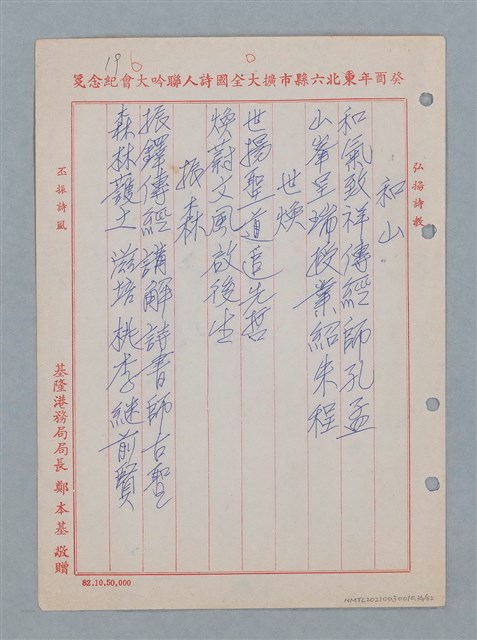 196
癸酉年東北六縣市擴大全國詩人聯吟大會紀念箋
弘揚詩教
和山
和氣致祥傳經師孔孟
山峯呈瑞授業紹朱程
世煥
世揚聖道追先哲
煥蔚文風啟後生
振森
振鐸傳經講解詩書師古聖
森林護土滋培桃李繼前賢
丕振詩風
基隆港務局局長 鄭本基 敬贈
82.10.50,000